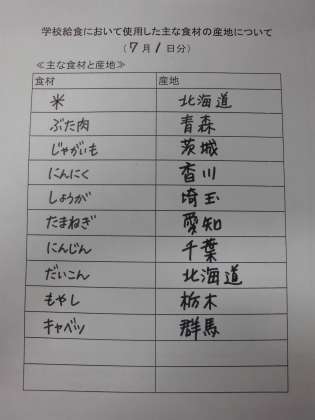 学校給食において使用した主な食材の産地について
(7月1日分)
≪主な食材と産地≫
食材 産地
米 北海道
ぶた肉 青森
じゃがいも 茨城
にんにく 香川
しょうが 埼玉
たまねぎ 愛知
にんじん 千葉
だいこん 北海道
もやし 栃木
キャベツ 群馬